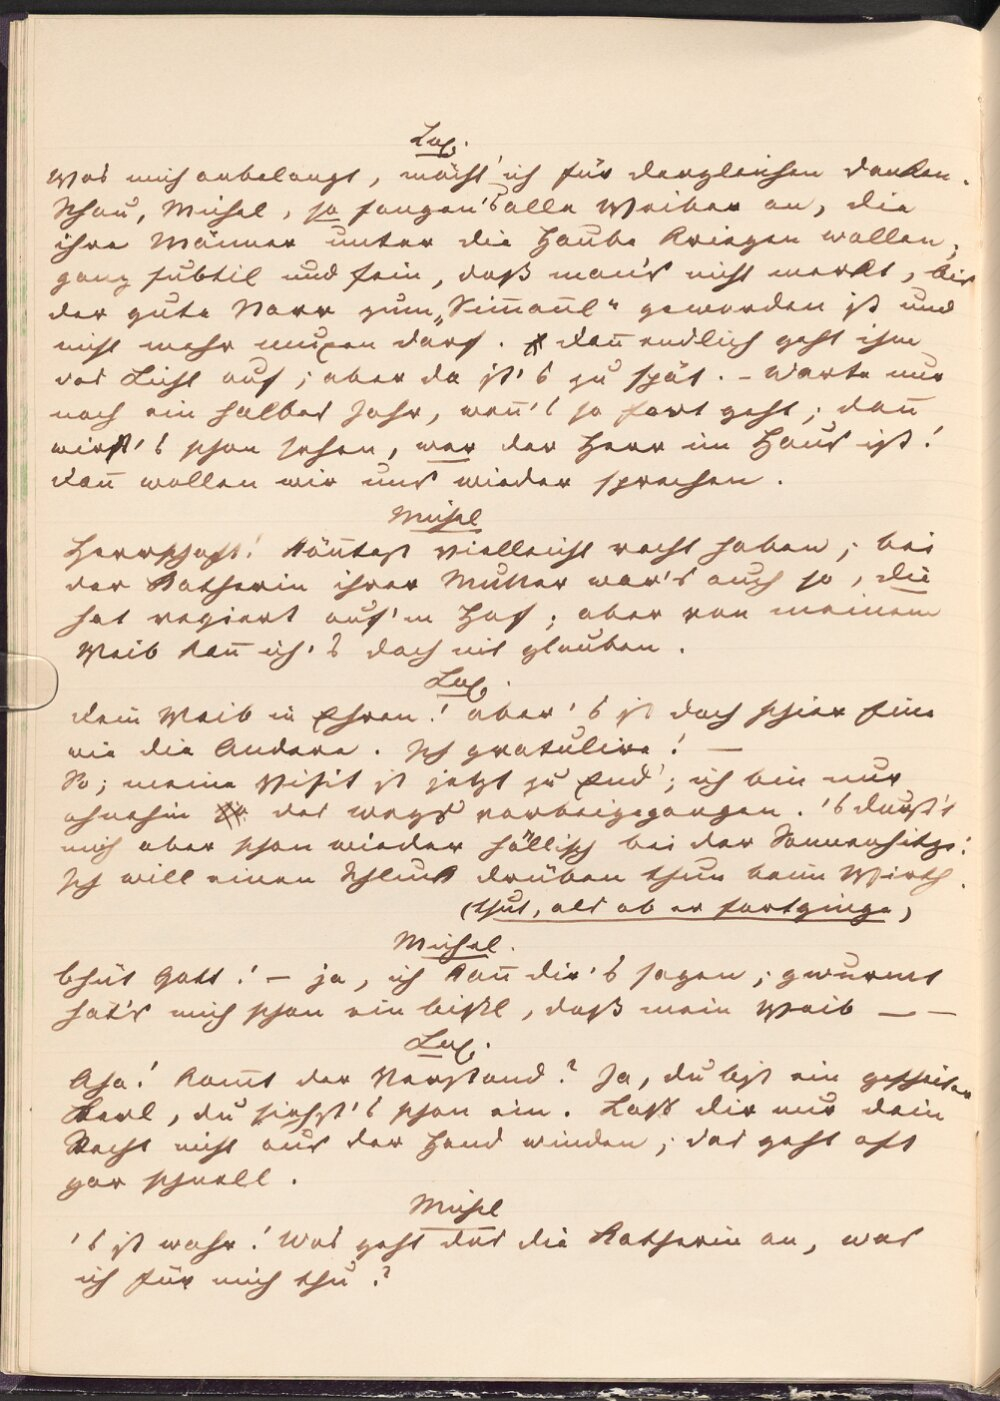 Lux.
Was mich anbelangt, möcht' ich für dergleichen danken.
Schau, Michel, so fangen's alle Weiber an, die
ihre Männer unter die Haube kriegen wollen;
ganz subtil und fein, daß man's nicht merkt, bis
der gute Narr zum „Simañl“ geworden ist und
nicht mehr muxen darf. Dañ endlich geht ihm
das Licht auf; aber da ist's zu spät. – Warte nur
noch ein halbes Jahr, weñ's so fort geht; dañ
wirst's schon sehen, wer der Herr im Haus ist!
Dañ wollen wir uns wieder sprechen.
Michel
Herrschaft! Köñtest vielleicht recht haben; bei
der Katherin ihrer Mutter war's auch so, die
hat regiert auf'm Hof; aber von meinem
Weib kañ ich's doch nit glauben.
Lux.
Dein Weib in Ehren! aber 's ist doch schier Eine
wie die Andere. Ich gratulire! —
So; meine Visit ist jetzt zu End'; ich bin nur
ohnehin des wegs vorbeigegangen. 's durst't
mich aber schon wieder höllisch bei der Sonnenhitze;
Ich will einen Schluck drüben thun beim Wirth.
(thut, als ob er fortginge)
Michel.
Bhüt Gott! – ja, ich kañ dir's sagen; gwurmt
hat's mich schon ein bißl, daß mein Weib — —
Lux.
Aha! Kom̃t der Verstand? Ja, du bist ein gescheiter
Kerl, du siehst's schon ein. Laß dir nur dein
Recht nicht aus der Hand winden; das geht oft
gar schnell.
Michel
's ist wahr! Was geht das die Katherin an, was
ich für mich thu'?